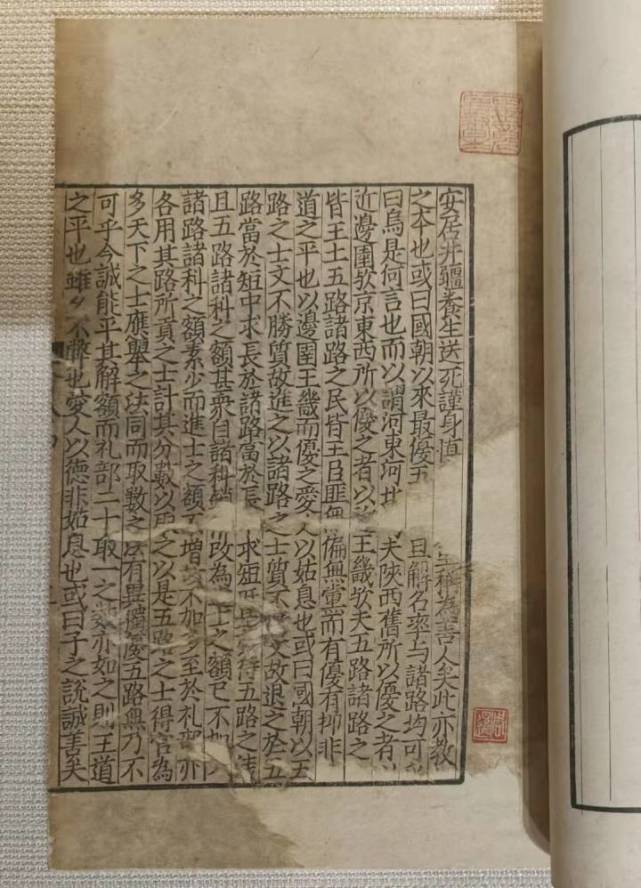 安居井疆養生送死謹身值 聖稱為善人矣此亦教
之本也或曰國朝以來最優五 且解名率与諸路均可
曰烏是何言也而以謂河東河北 夫陝西舊所以優之者以
近邊圉欤京東西所以優之者以 王畿欤夫五路諸路之
皆王土五路諸路之民皆王臣匪無偏無黨而有優有抑非
道之平也以邊圉王畿而優之愛人以姑息也或曰國朝以五
路之士文不勝質故進之以諸路之士質不 文故退之於五
路當於短中求長於諸路當於長 求短 五路之
且五路諸科之額甚衆自諸科 改為 士之額已不
諸路諸科之額素少而進士之額 增 不加多至於礼 亦
各用其路所貢之士計其分數以 之以是五路之士得官為
多天下之士應舉之法同而取數之 有異獨優五路無乃不
可乎今誠能平其解額而礼部二十取一之數亦如之則王道
之平也雖少不弊也愛人以德非姑息也或曰子之說誠善矣